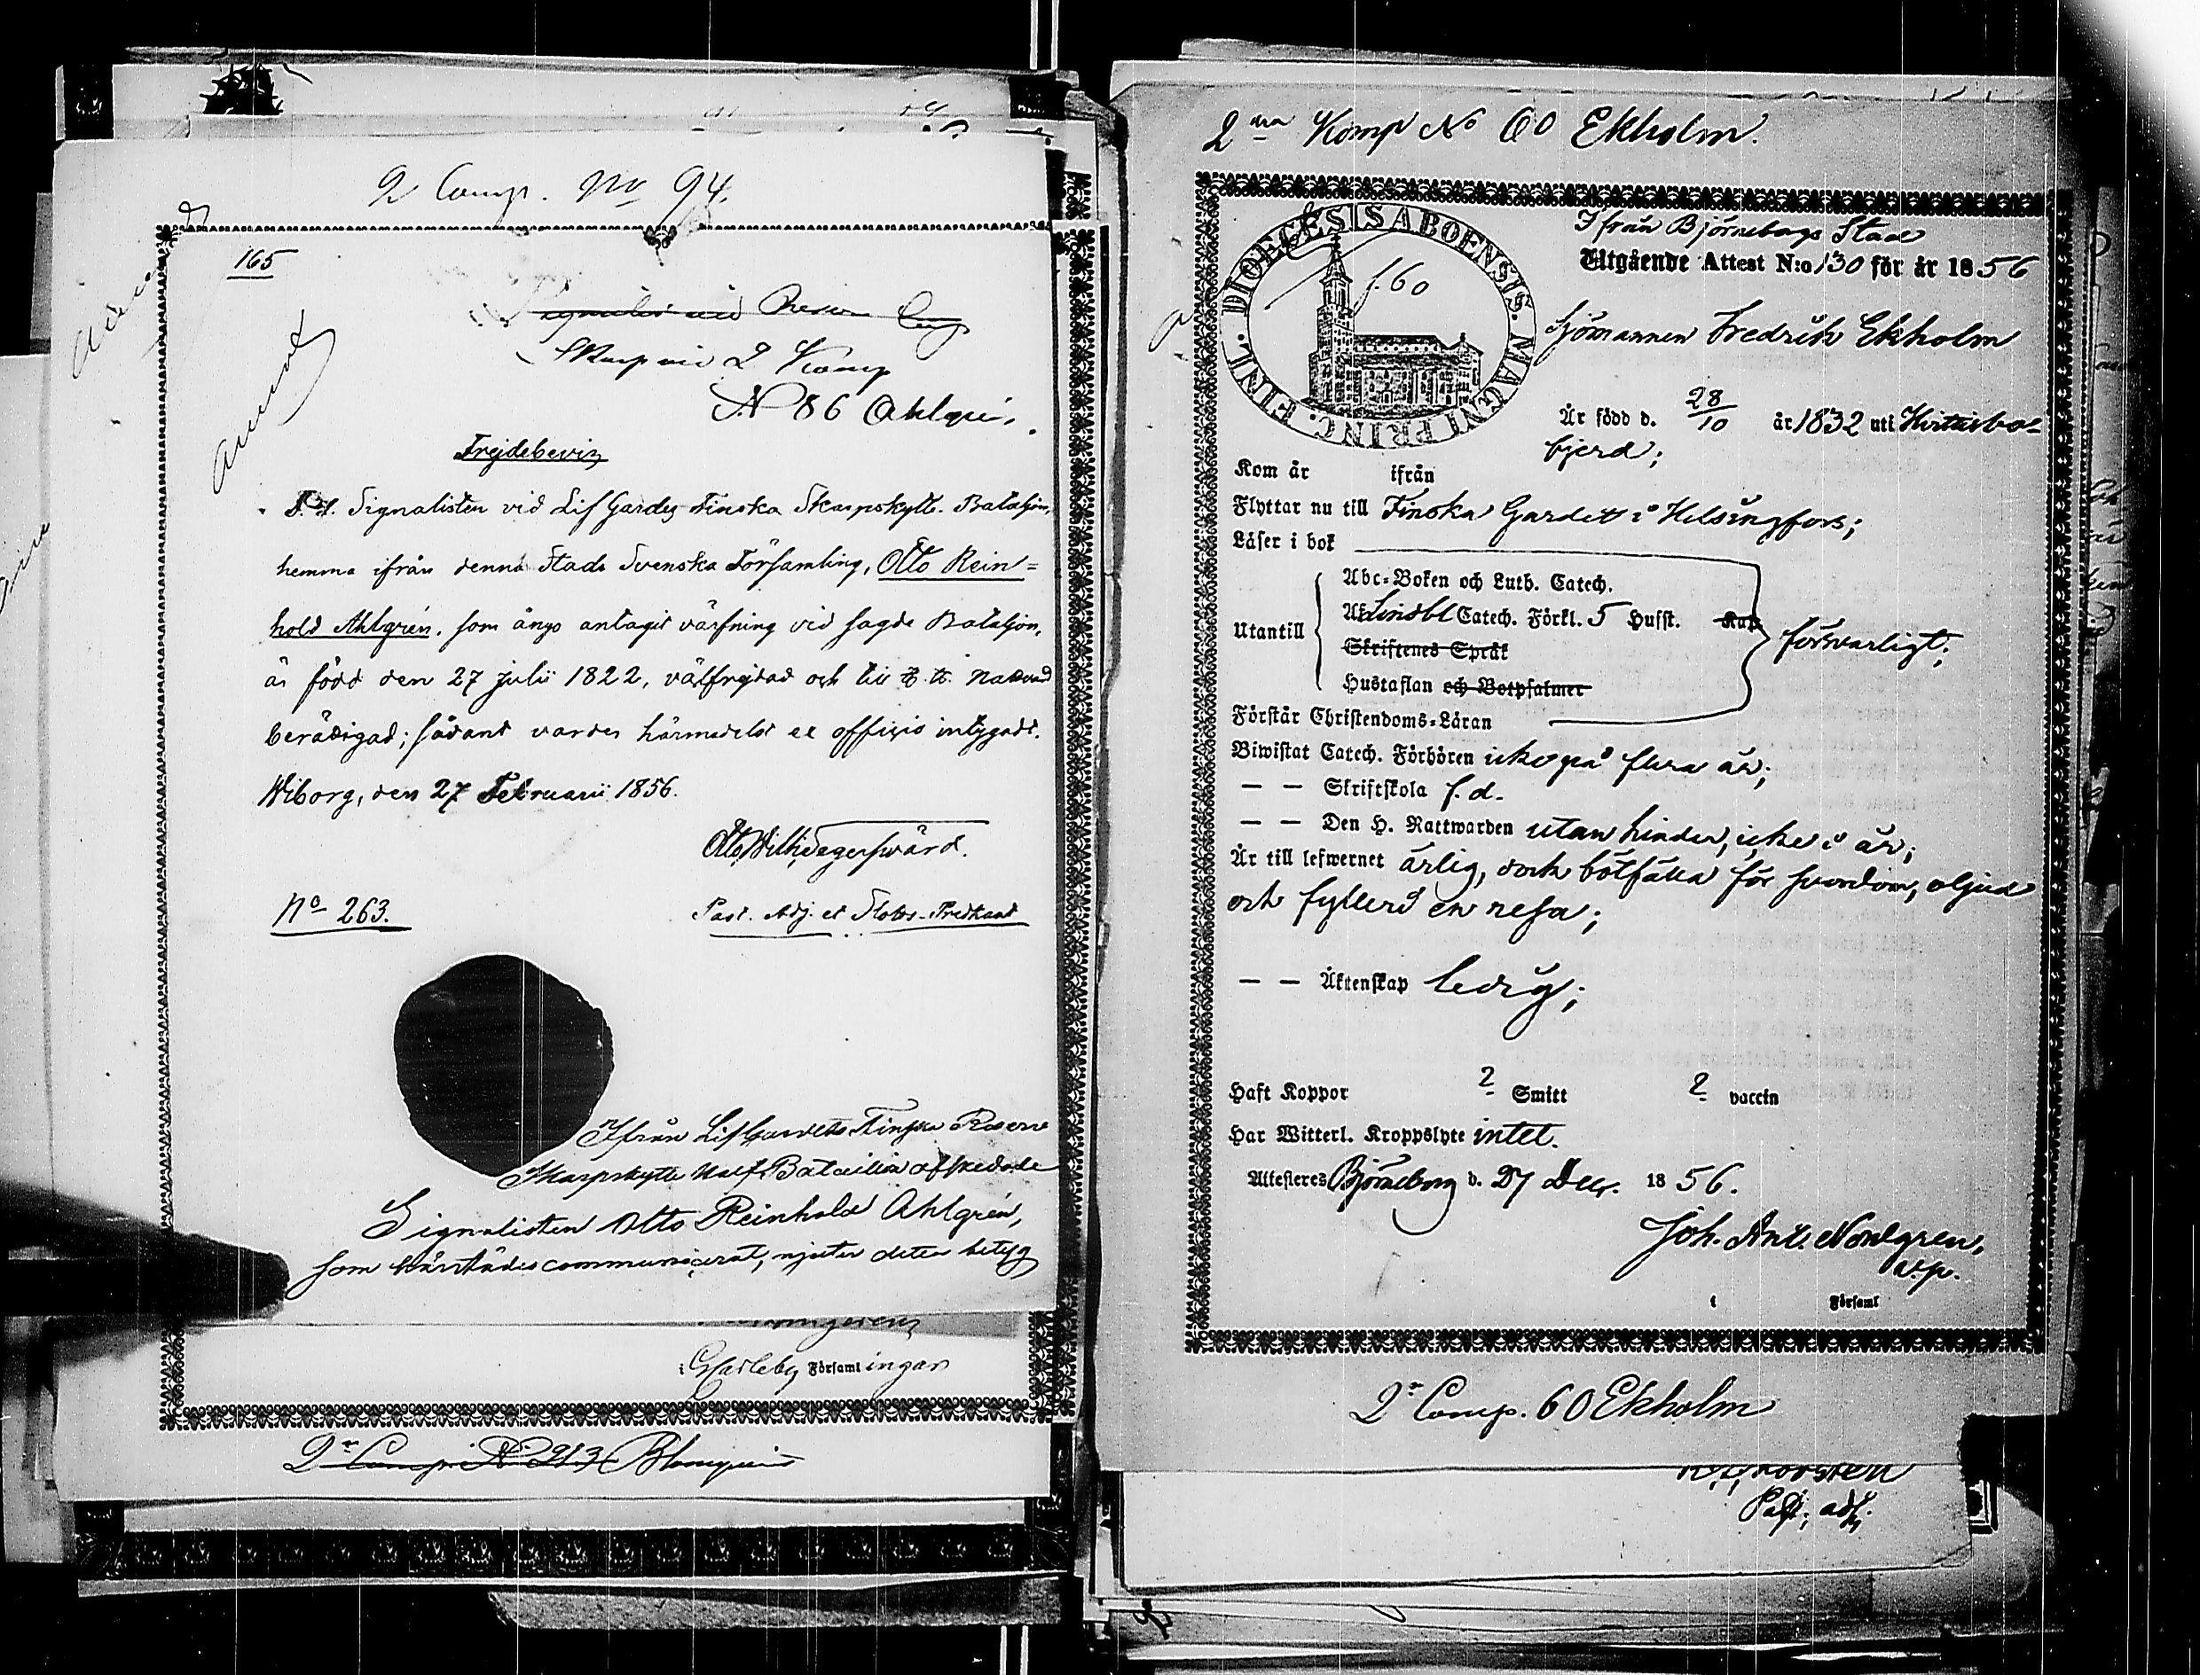 2 Comp. No 94.
165
Skarp vid 2 Komp
N 86 Ahlgrén.
Frejdebevis
F. d. Signalisten vid Lif Gardes Finska Skarpskytte Bataljon,
hemma ifrån denna Stads Svenska Församling, Otto Rein=
hold Ahlgrén, som ånyo antagit värfning vid sagde Bataljon,
är född den 27 julii 1822, välfrejdad och till H. H. Nattvard
berättigad; sådant varder härmedelst ex officio intygadt.
Wiborg, den 27 Februarii 1856.
Otto Wilh. Segersvärd.
No 263.
Past. Adj. et Slotts-Predikant
Ifrån Lif Gardets Finska Reserve
Skarpskytte Half Bataillon afskedade
Signalisten Otto Reinhold Ahlgrén,
som härstädes communicerat, njuter detta betyg
Församlingar
2r Comp. N 213 Blomqvist
2dra Komp No 60 Ekholm.
DIOECESIS ABOENSIS. MAGNI PRINC. FINL.
f. 60
Ifrån Björneborgs Stad
Utgående Attest N:o 130 för år 1856
Sjömannen Fredrik Ekholm
Är född d. 28/10 år 1832 uti Hvittisbo-
fjerd;
Kom år ifrån
Flyttar nu till Finska Gardet i Helsingfors;
Läser i bok
Utantill
Abc-Boken och Luth. Catech.
Lindbl Catech. Förkl. 5 Husst.
Skriftenes Språk
Hustaflan och Botpsalmer
försvarligt;
Förstår Christendoms-Läran
Biwistat Catech. Förhören icke på flera år;
— — Skriftskola f. d.
— — Den H. Nattwarden utan hinder, icke i år;
Är till lefwernet ärlig, dock bötfälld för svordom, oljud
och fylleri en resa;
— — Äktenskap ledig;
Haft Koppor ? Smitt ? vaccin
Har Witterl. Kroppslyte intet.
Attesteres Björneborg d. 27 Decr. 1856.
Joh. Ant. Nordgren,
v. p.
i Församl
2r Comp. 60 Ekholm
Past. adj.